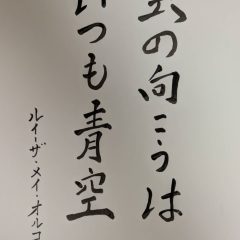 の向こうは
いつも青空
ルイーザ・メイ・オルコ